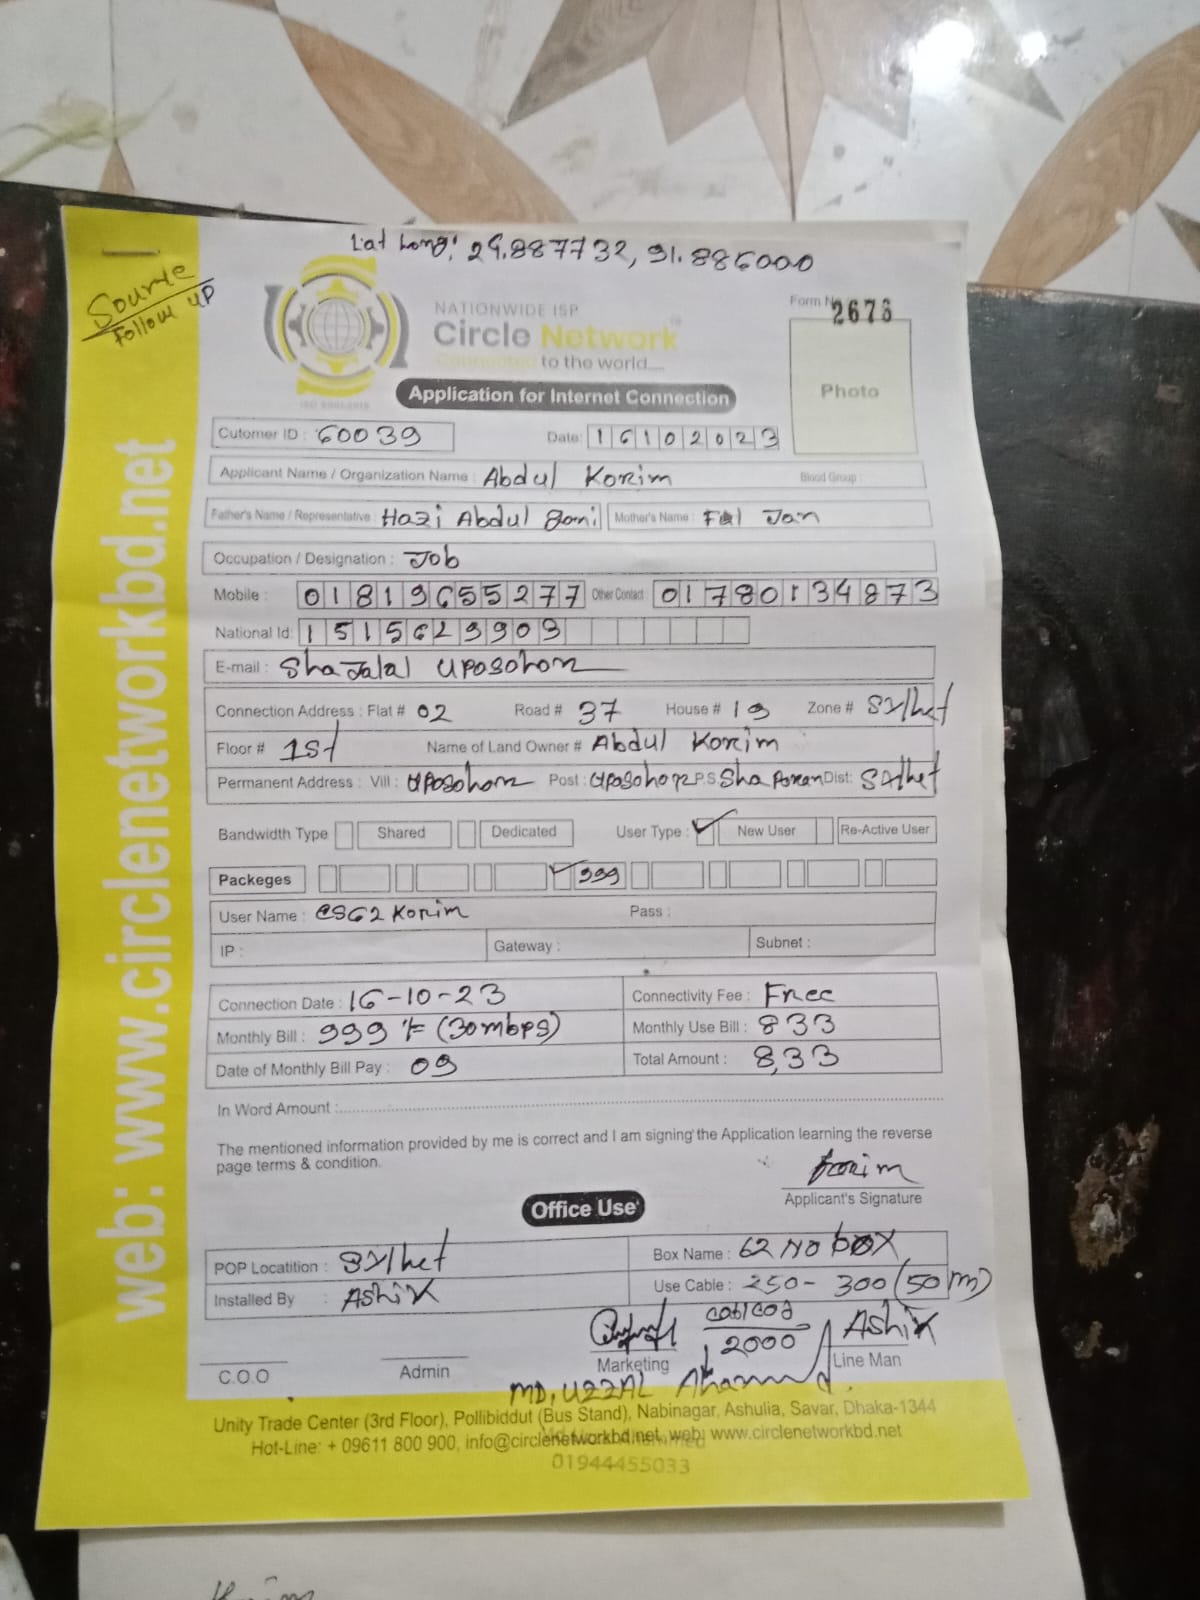 Lat Long: 24.887732, 91.886000
Source
Follow UP
NATIONWIDE ISP
Circle Network
Connected to the world....
Form N 2676
Photo
Application for Internet Connection
Cutomer ID : 60039 Date: 16102023
Applicant Name / Organization Name : Abdul Korim Blood Group :
Father's Name / Representative : Hazi Abdul Goni Mother's Name : Ful Jan
Occupation / Designation : Job
Mobile : 01819655277 Other Contact 01780134873
National Id: 1515629903
E-mail : ShaJalal Uposohor
Connection Address : Flat # 02 Road # 37 House # 19 Zone # Sylhet
Floor # 1st Name of Land Owner # Abdul Korim
Permanent Address : Vill : Uposohor Post : Uposohor P.S Sha Poran Dist: Sylhet
Bandwidth Type Shared Dedicated User Type : New User Re-Active User
Packeges 999
User Name : CS62Korim Pass :
IP : Gateway : Subnet :
Connection Date : 16-10-23 Connectivity Fee : Free
Monthly Bill : 999 (30mbps) Monthly Use Bill : 833
Date of Monthly Bill Pay : 09 Total Amount : 833
In Word Amount :
The mentioned information provided by me is correct and I am signing the Application learning the reverse
page terms & condition.
Korim
Applicant's Signature
Office Use
POP Locatition : Sylhet Box Name : 62 NO box
Installed By : Ashik Use Cable : 250- 300 (50 m)
2000 Ashik
C.O.O Admin Marketing Line Man
MD, UZZAL Ahammed
Unity Trade Center (3rd Floor), Pollibiddut (Bus Stand), Nabinagar, Ashulia, Savar, Dhaka-1344
Hot-Line: + 09611 800 900, info@circlenetworkbd.net, web: www.circlenetworkbd.net
01944455033
web: www.circlenetworkbd.net